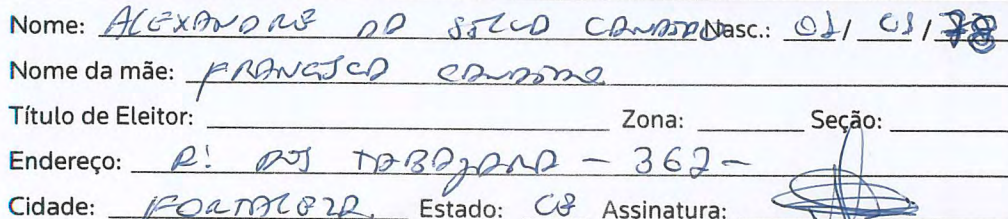 Nome: ALEXANDRE DA SILVA CANDIDO Nasc.: 01/ 01/ 78
Nome da mãe: FRANCISCA CANDIDO
Título de Eleitor: Zona: Seção:
Endereço: R: DOS TABAJARA - 362 -
Cidade: FORTALEZA Estado: CE Assinatura: